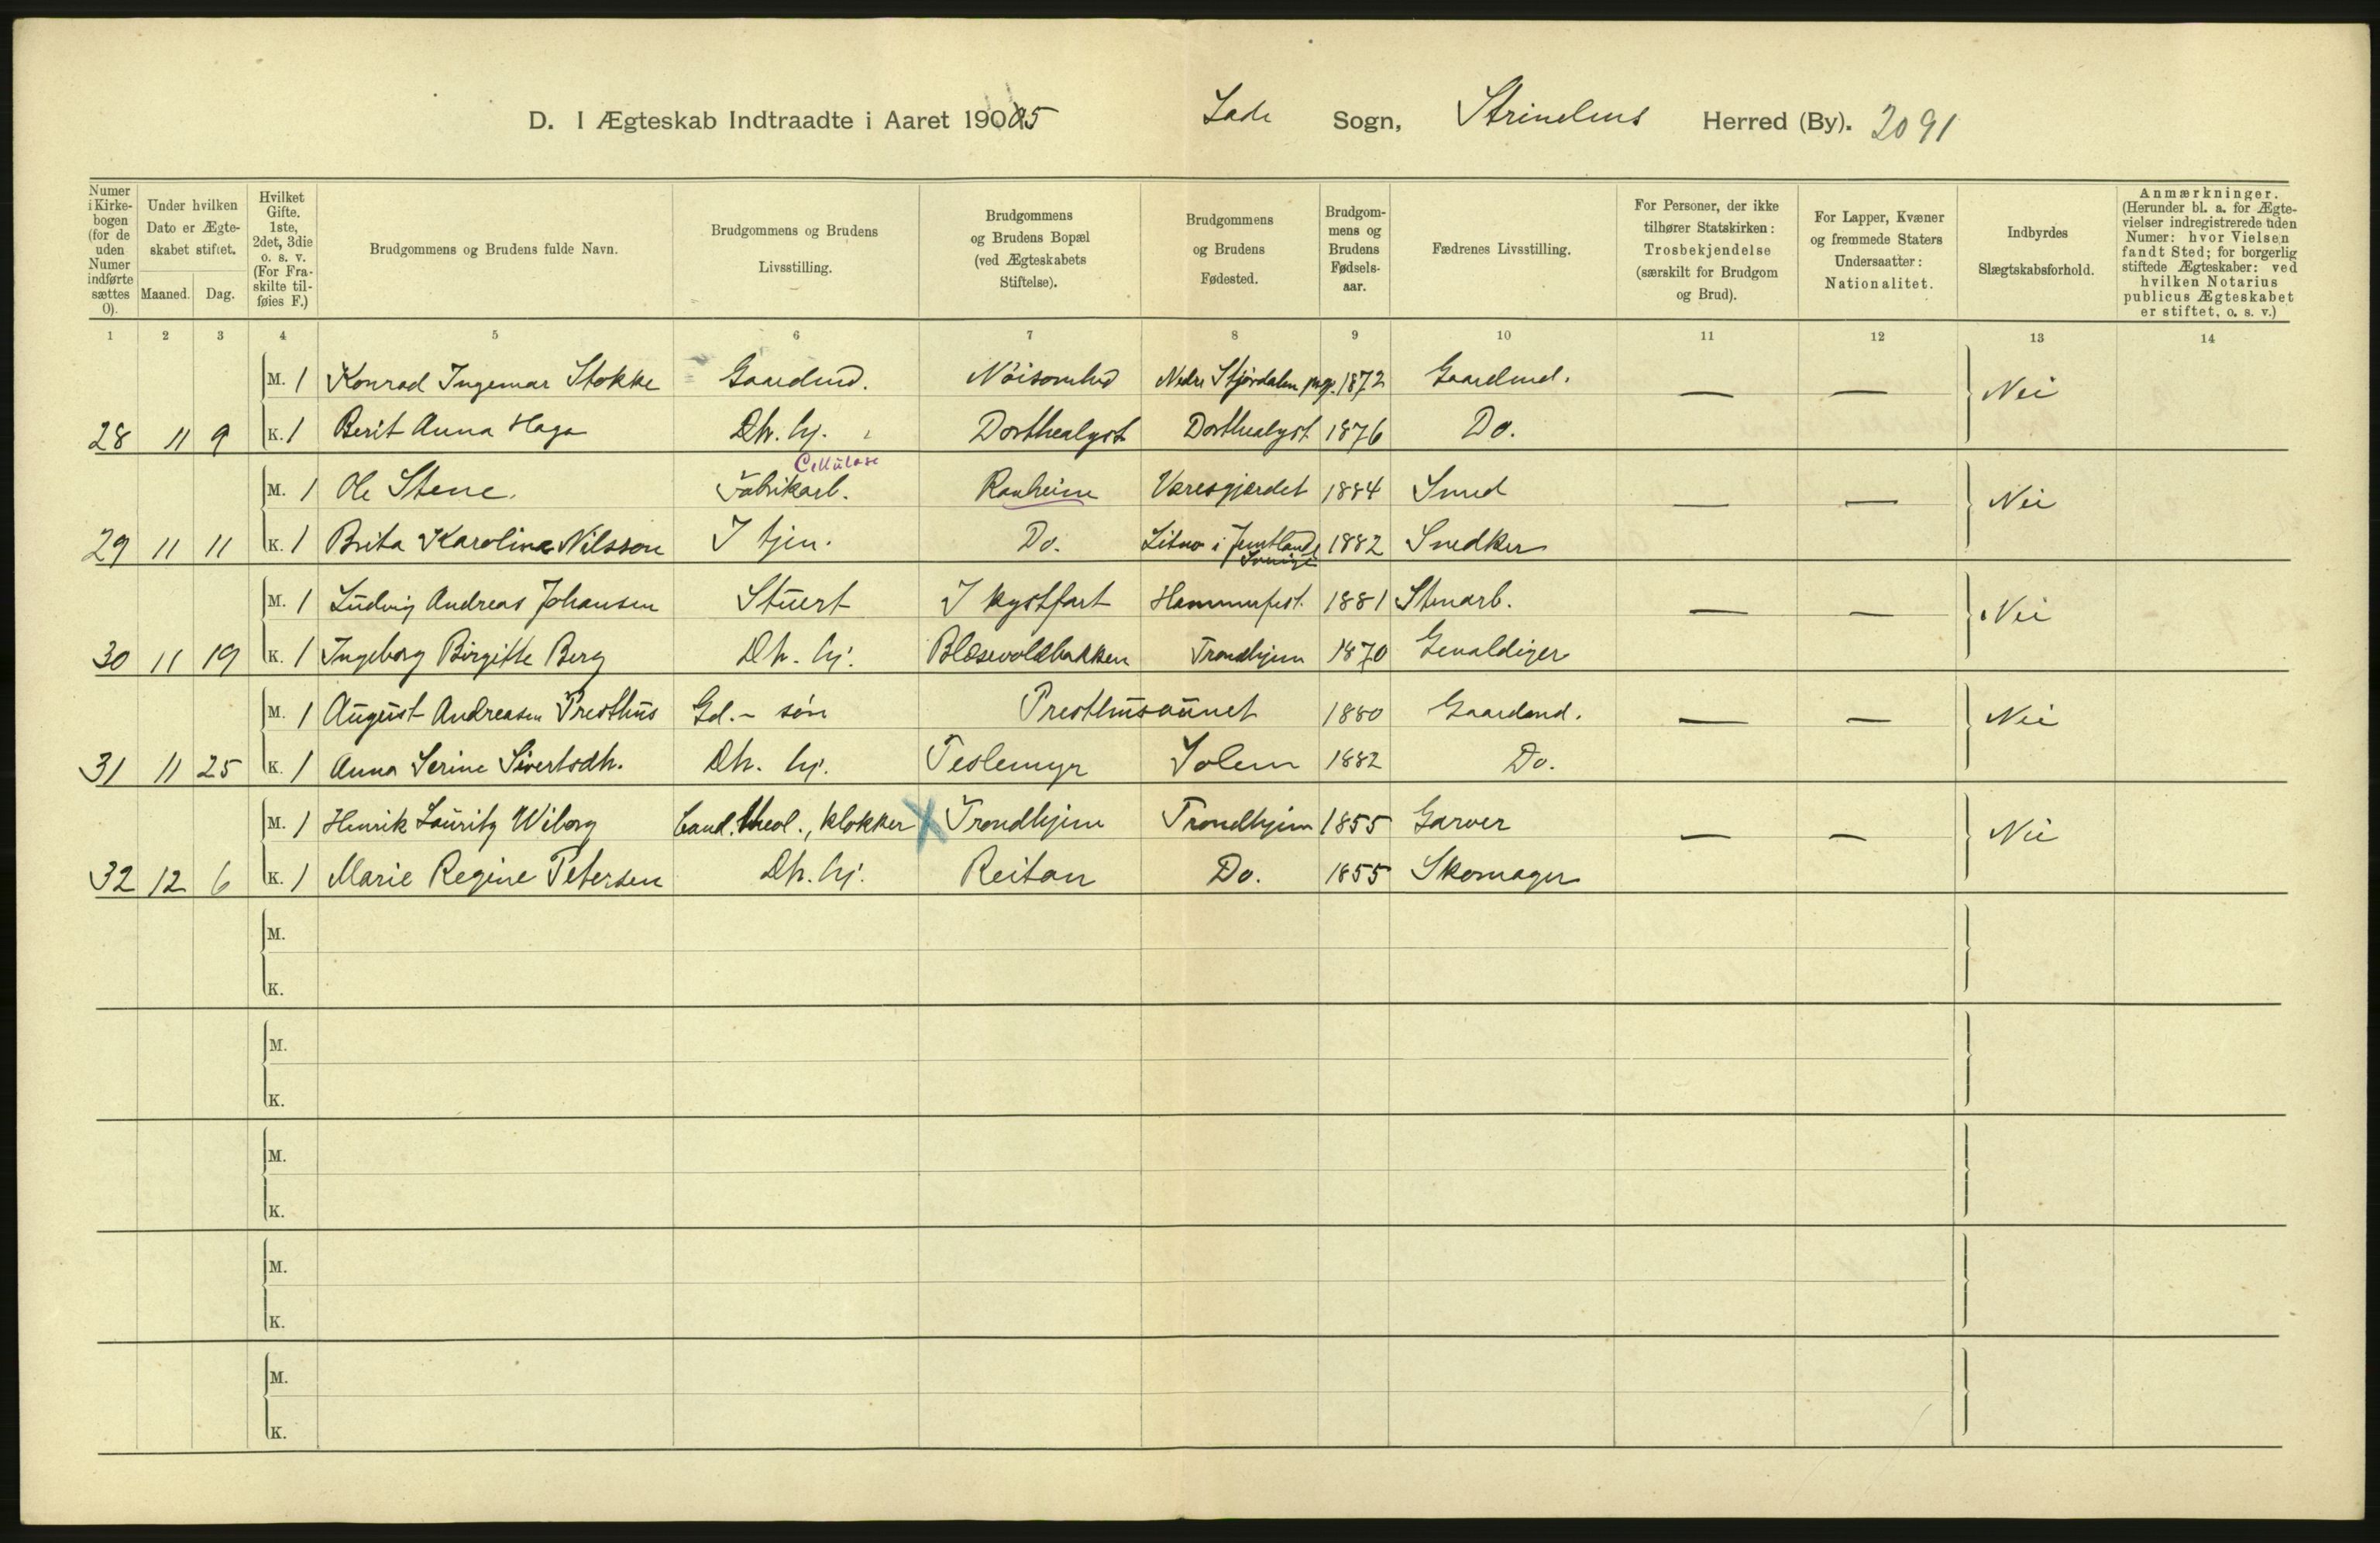 D. I Ægteskab Indtraadte i Aaret 190 05 Lade Sogn, Strindens Herred (By). 2091
Numer i Kirkebogen (for de uden Numer indførte sættes 0).
Under hvilken Dato er Ægteskabet stiftet.
Maaned. Dag.
Hvilket Gifte. 1ste, 2det, 3die o. s. v. (For Fraskilte tilføies F.)
Brudgommens og Brudens fulde Navn.
Brudgommens og Brudens Livsstilling.
Brudgommens og Brudens Bopæl (ved Ægteskabets Stiftelse).
Brudgommens og Brudens Fødested.
Brudgommens og Brudens Fødselsaar.
Fædrenes Livsstilling.
For Personer, der ikke tilhører Statskirken: Trosbekjendelse (særskilt for Brudgom og Brud).
For Lapper, Kvæner og fremmede Staters Undersaatter: Nationalitet.
Indbyrdes Slægtskabsforhold.
Anmærkninger. (Herunder bl. a. for Ægtevielser indregistrerede uden Numer: hvor Vielsen fandt Sted; for borgerlig stiftede Ægteskaber: ved hvilken Notarius publicus Ægteskabet er stiftet, o. s. v.)
1 2 3 4 5 6 7 8 9 10 11 12 13 14
M. 1 Konrad Ingemar Stokke Gaardmd. Nöisomhed Nedre Stjørdalen pgj. 1872 Gaardmd. — — Nei
28 11 9 K. 1 Berit Anna Haga Dh. hj. Dorthealyst Dorthealyst 1876 Do.
Cellulose
M. 1 Ole Stene. Fabrikarb. Ranheim Væresgjærdet 1884 Smed — — Nei
29 11 11 K. 1 Brita Karolina Nilsson I tjen. Do. Litnò i Jemtland 1882 Snedker
Sverige
M. 1 Ludvig Andreas Johansen Stuert I kystfart Hammerfest. 1881 Stenarb. — — Nei
30 11 19 K. 1 Ingeborg Birgitte Berg Dh. hj. Blæsevoldbakken Trondhjem 1870 Gevaldiger
M. 1 August Andreasen Presthus Gd.- søn Presthusaunet 1880 Gaardmd. — — Nei
31 11 25 K. 1 Anna Serine Sivertsdh. Dh. hj. Teslemyr Solem 1882 Do.
M. 1 Henrik Lauritz Wiborg Cand. theol., klokker X Trondhjem Trondhjem 1855 Garver — — Nei
32 12 6 K. 1 Marie Regine Petersen Dh. hj. Reitan Do. 1855 Skomager
M.
K.
M.
K.
M.
K.
M.
K.
M.
K.